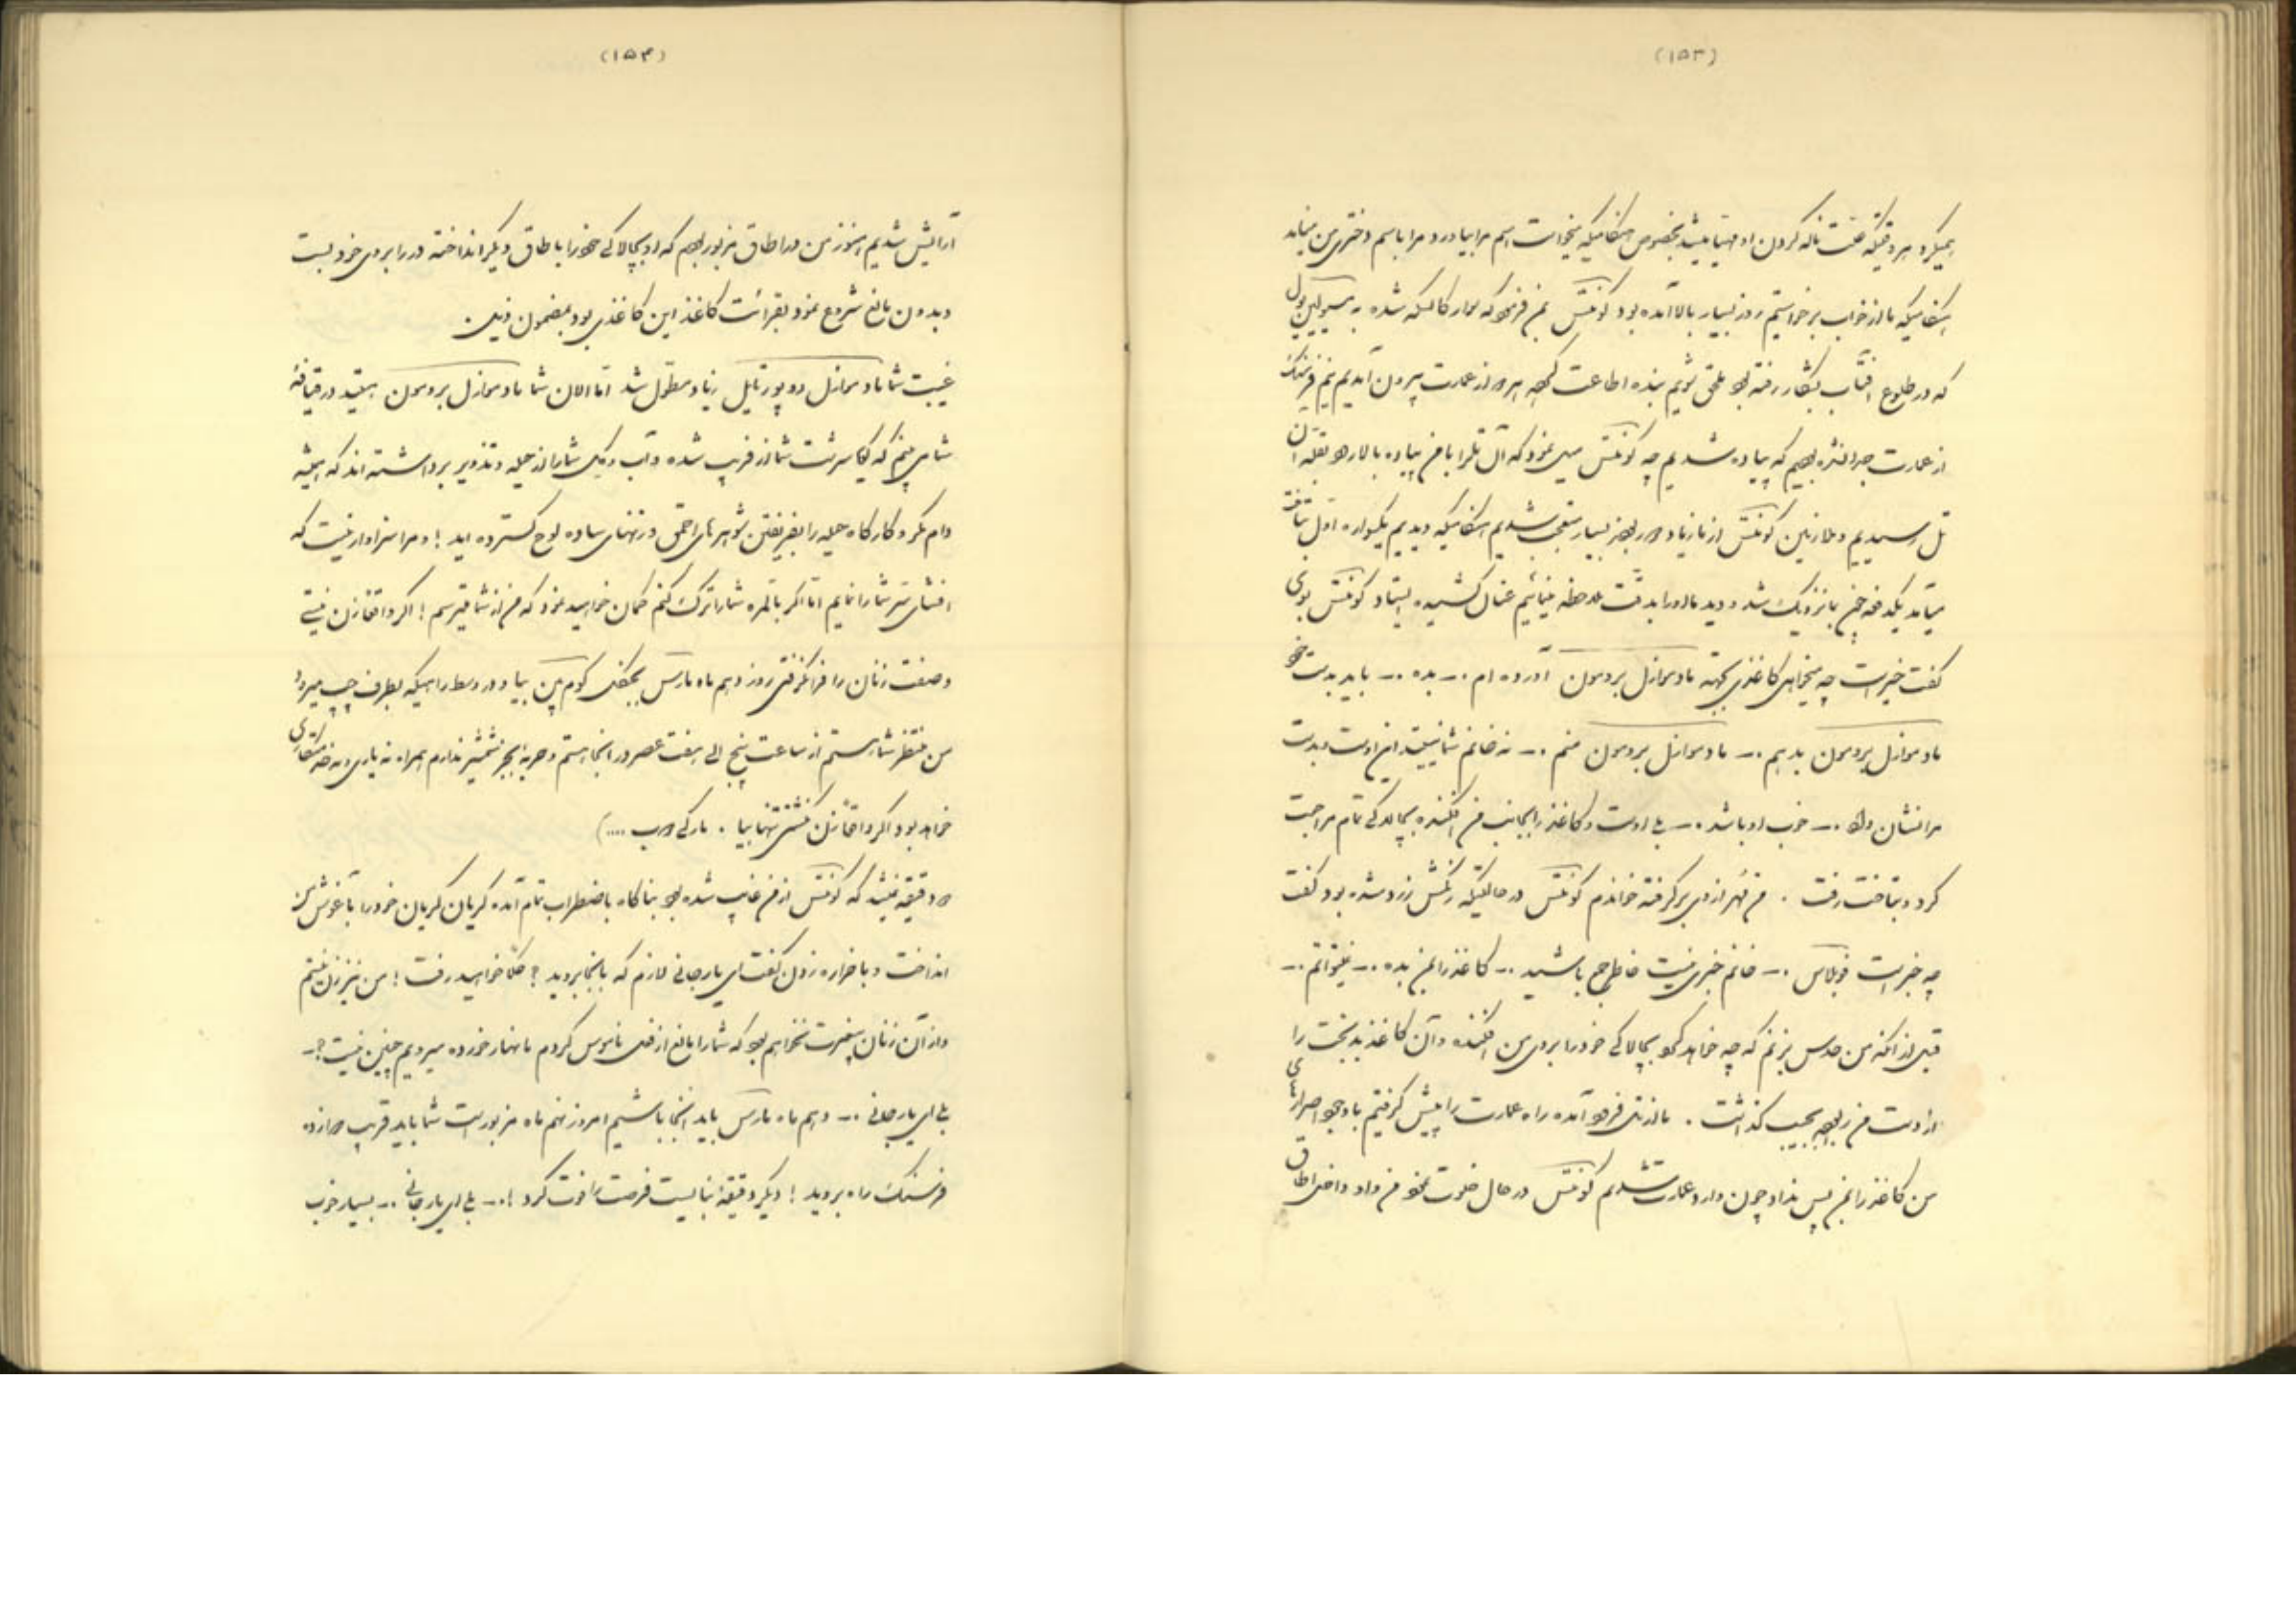 (۱۵۳)
میکرد هر وقتیکه صحبت ناله کردن او مهیا میشد بخصوص هنگامیکه میخواست اسم مرا بیاورد و مرا باسم دختری من میناند
هنگامیکه ما از خواب برخواستیم روز بسیار بالا آمده بود کونتس بمن فرمود که سوار کالسکه شده به
که در طلوع آفتاب بشکار رفته بود ملحق شویم بنده اطاعت کرده هر دو از عمارت بیرون آمدیم نیم فرسنگ
از عمارت جدا نشده بودیم که پیاده شدیم چه کونتس میل نمود که آن تل را با من پیاده بالا رود بقله آن
تل رسیدیم و ملازمین کونتس از ما زیاد دور بودند بسیار متعجب شدیم هنگامیکه دیدیم یکسواره اول بتاخت
میآید یکدفعه چون بما نزدیک شد و دید ما او را بدقت ملاحظه مینمائیم عنان کشیده ایستاد کونتس بوی
گفت خبر است چه میخواهی کاغذی بجهته مادموازل بردمون آورده ام .- بده .- باید بدست خود
مادموازل بردمون بدهم .- مادموازل بردمون منم .- نه خانم شما نیستید این اوست و بدست
مرا نشان داد .- خوب او باشد .- بلی اوست و کاغذ را بجانب من افکنده بچالاکی تمام مراجعت
کرد و بتاخت رفت . من مُهر از وی برگرفته خواندم کونتس در حالتیکه رنگش زرد شده بود گفت
چه خبر است فوبلاس .- خانم خبری نیست خاطر جمع باشید .- کاغذ را بمن بده .- نمیتوانم .-
قبل از آنکه من حدس بزنم که چه خواهد کرد بچالاکی خود را بروی من افکنده و آن کاغذ بدبخت را
از دست من ربوده بجیب گذاشت . ما از تل فرود آمده راه عمارت را پیش گرفتیم با وجود اصرارهای
من کاغذ را بمن پس نداد چون وارد عمارت شدیم کونتس در حال خلوت نمود من و او داخل اطاق
(۱۵۴)
آرایش شدیم هنوز من در اطاق مزبور بودم که او بچالاکی خود را باطاق دیگر انداخته در را بروی خود بست
و بدون مانع شروع نمود بقرائت کاغذ این کاغذی بود بمضمون ذیل .
غیبت شما مادموازل دو پورتایل زیاد مطول شد اما الان شما مادموازل بردمون هستید در قیافهٔ
شما می بینم که گویا سرشت شما از فریب شده و آب و گل شما را از حیله و تذویر برداشته اند که همیشه
دام مکر و کارگاه حیله را بفریفتن شوهرهای احمق و زنهای ساده لوح گسترده اید ! و مرا سزاوار نیست که
افشای سّر شما را نمایم اما اگر بالمره شما را ترک کنم گمان خواهید نمود که من از شما میترسم ! اگر واقعا زن نیستی
و صفت زنان را فرا نگرفتی روز دهم ماه مارس بجنگل کوم پین بیا و در وسط راهیکه بطرف چپ میرود
من منتظر شما هستم از ساعت پنج الی هفت عصر در آنجا هستم و حربه بجز شمشیر ندارم همراه نه یاری و نه خدمتکاری
خواهد بود اگر واقعا زن نیستی تنها بیا . مارکی دوب ....)
دو دقیقه نمیشد که کونتس از من غایب شده بود بناگاه باضطراب تمام آمده گریان گریان خود را بآغوش من
انداخت و با حرارت دل گفت ای یار جانی لازم که بآنجا بروید ؟ حکما خواهید رفت ! من نیز زن نیستم
و از آن زنان بیغیرت نخواهم بود که شما را مانع از حفظ ناموس کردم ما نهار خورده میرویم چنین نیست ؟ .-
بلی ای یار جانی .- دهم ماه مارس باید آنجا باشیم امروز نهم ماه مزبور است شما باید قریب دوازده
فرسنک راه بروید ! دیگر دقیقهٔ نبایست فرصت را فوت کرد ! .- بلی ای یار جانی .- بسیار خوب